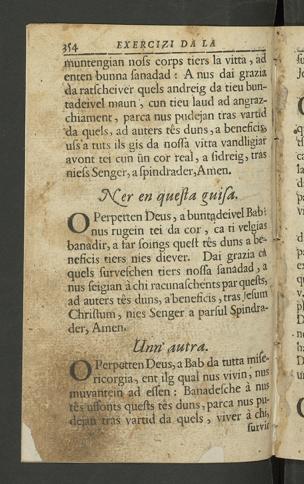 354 EXERCIZI DA LA
muntengian noss corps tiers la vitta, ad
enten bunna sanadad: A nus dai grazia
da ratscheiver quels andreig da tieu bun-
tadeivel maun, cun tieu laud ad angraz-
chiament, parca nus pudejan tras vartid
da quels, ad auters tês duns, a beneficis,
us a tuts ils gis da nossa vitta vandligiar
avont tei cun ün cor real, a sidreig, tras
niess Senger, a spindrader, Amen.
Ner en questa guisa.
O Perpetten Deus, a buntadeivel Bab:
nus rugein tei da cor, ca ti velgias
banadir, a far soings quest tês duns a be-
neficis tiers nies diever. Dai grazia ca
quels surveschen tiers nossa sanadad, a
nus seigian à chi racunaschents par quests,
ad auters tês duns, a beneficis, tras Jesum
Christum, nies Senger a parsul Spindra-
der, Amen.
Unn' autra.
O Perpetten Deus, a Bab da tutta mise-
ricorgia, ent ilg qual nus vivin, nus
muvantein ad essen: Banadesche à nus
têsussonts quests tês duns, parca nus pu-
dejan tras vartid da quels, viver à chi,
survir